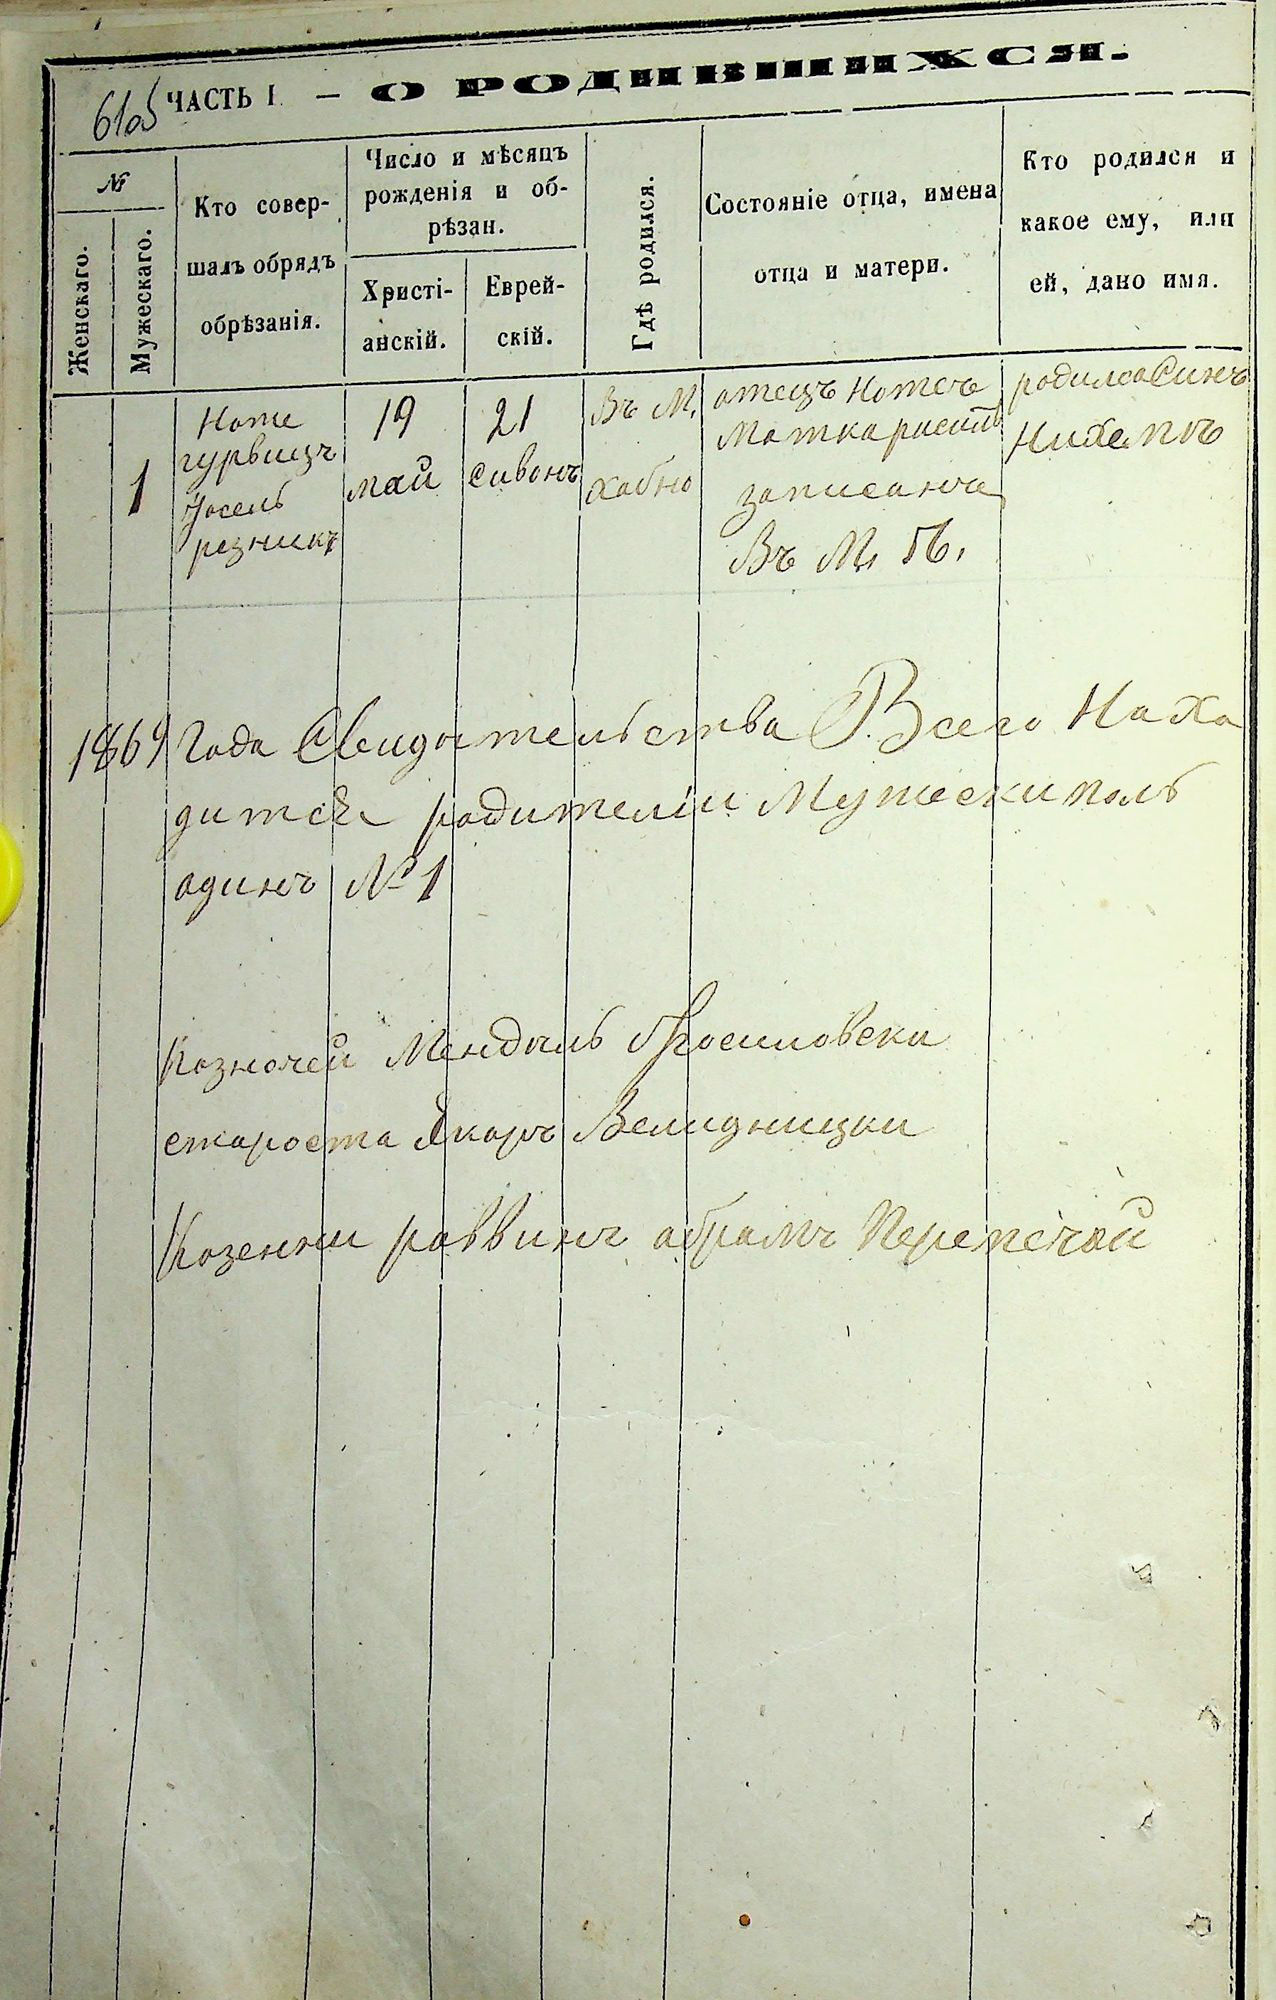 6105 ЧАСТЬ I. — О РОДИВШИХСЯ.
№
Женскаго.
Мужескаго.
Кто совер-
шалъ обрядъ
обрѣзанія.
Число и мѣсяцъ
рожденія и об-
рѣзан.
Христі-
анскій.
Еврей-
скій.
Гдѣ родился.
Состояніе отца, имена
отца и матери.
Кто родился и
какое ему, или
ей, дано имя.
1
Ноте
гурвицъ
Иосель
резникъ
19
май
21
сивонъ
Въ М.
Хабно
отецъ Нотсъ
Матка
записаніе
Въ М.
родился Синъ
1869 Года Свидотельства Всего Нахо
дитсе родителіи Мужески поль
одинъ № 1
Козночей Мендыль
староста Велидницки
Козенни раввинъ абрамъ Перепечай